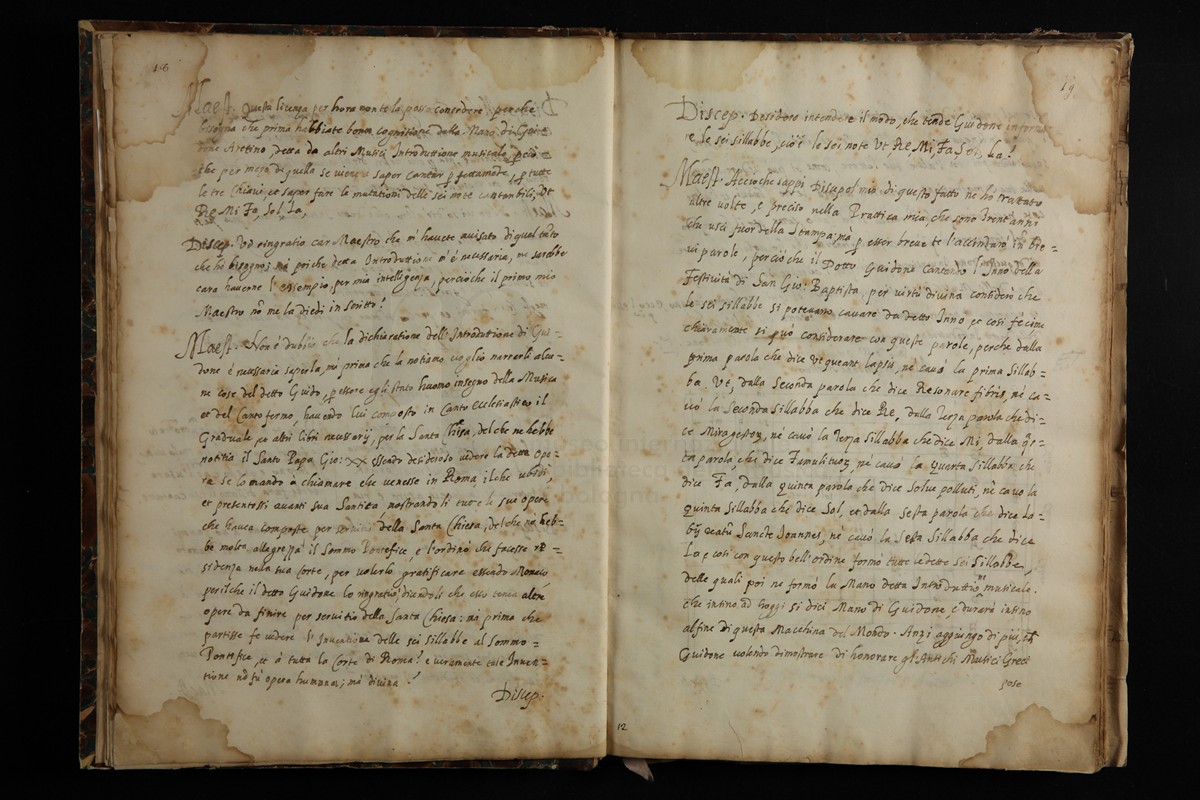 16
Maest. Questa licenza per hora non te la posso concedere perche
bisogna che prima habbiate bona cognitione della Mano di Gui=
done Aretino, detta da altri Musici Introduttione musicale, però
che per mezo di quella se viene a saper cantar p̱fettamēte, p̱ tutte
le tre Chiavi, et saper fare le mutationi delle sei note cantabili, Vt
Re Mi Fa, Sol, La,
Discep. Vd ringratio car Maestro che m'havete avisato di quel tāto
che ho bisogno; mà poiche detta Introduttione m'è necessaria, me sarebbe
cara haverne l'essempio, per mia intelligenza, percioche il primo mio
Maestro nō me la diedi in scritto!
Maest. Non è dubio, che la dichiaratione dell'Introduttione di Gui=
done è necessaria saperla, mà prima che la notiamo voglio narrarli alcu=
ne cose del detto Guido, p̱ essere egli stato huomo insegno della Musica
et del Canto fermo, havendo lui composto in Canto Ecclesiastico il
Graduale, et altri libri necessarij, per la Santa Chiesa, del che ne hebbe
notitia il Santo Papa Gio: XX essendo desideroso vedere la detta Ope=
ra se lo mandò à chiamare che venesse in Roma, il che ubedì,
et presentossi avanti sua Santità mostrandoli tutte le sue opere
che havea composte per della Santa Chiesa, del che ne heb=
be molta allegrezza il Sommo Pontefice, e l'ordinò che facesse re=
sidenza nella sua Corte, per volerlo gratificare essendo Monaco
perilche il detto Guidone lo ringratiò, dicendoli che esso tenea altre
opere da finire per servitio della Santa Chiesa: mà prima che
partisse fe vedere l'inventione delle sei sillabbe al sommo=
Pontefice, et à tutta la Corte di Roma! e veramente tale Inven=
tione nō fù opera humana; mà divina!
Discep.
19
Discep. Desidero intendere il modo, che tende Guidone
re le sei sillabbe, cioè le sei note Vt, Re, Mi, Fa, Sol, La!
Maest. Accioche sappi Discepol mio di questo fatto ne ho trattato
altre volte, e preciso nella Prattica mia, che sono trent'anni
che uscì fuor della Stampa: mà p̱ esser breve te l'accennarò in bre=
vi parole, percioche il Dotto Guidone cantando l'Inno della
Festività di San Gio: Baptista per virtù divina considerò che
le sei sillabbe si potevano cavare da detto Inno e così fe come
chiaramente si può considerare con queste parole, perche dalla
prima parola che dice Vt queant lapsis, ne cavò la prima Sillab=
ba. Vt, dalla Seconda parola che dice Resonare fibris, nè ca=
vò la Seconda Sillabba che dice Re, dalla terza parola che di=
ce Mira gestoꝝ, nè cavò la terza Sillabba che dice Mi, dalla qr=
ta parola, che dice Famuli tuoꝝ, nè cavò la Quarta Sillabba che
dice Fa, dalla quinta parola che dice Solve polluti, nè cavò la
quinta Sillabba che dice Sol, et dalla sesta parola che dice La=
bij reatū Sancte Ioannes, nè cavò la Sesta Sillabba che dice
La, e così con questo bell'ordine formò tutte le dette sei Sillabbe,
delle quali poi ne formò la Mano detta Introduttione musicale.
che insino ad hoggi si dici Mano di Guidone, e durarà insino
al fine di questa Macchina del Mondo. Anzi aggiungo di più, ch̄
Guidone volendo dimostrare di honorare gl'Antichi Musici Greci
pose
12